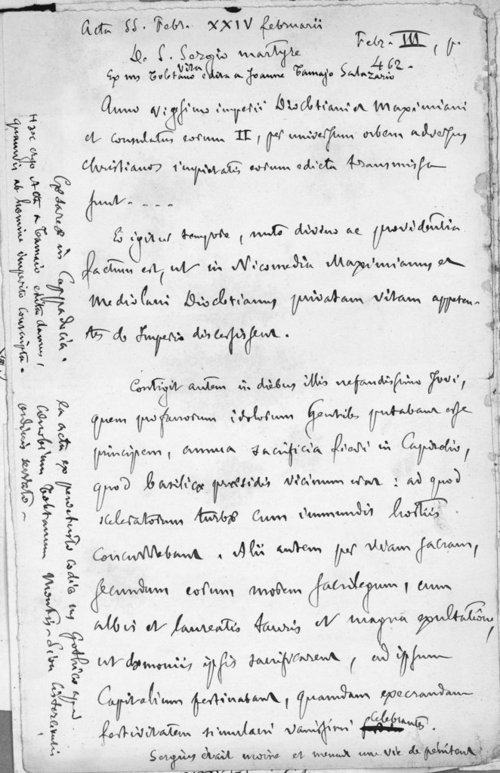 Acta SS. Febr. XXIV februarii
Febr. III, p.
462.
De S. Sergio martyre
Vita
Ex ms Tolet­ano edita a Joanne Tamajo Salazario
Anno vigesimo imperii Diocletiani et Maximiani
et consulatus eorum II, per universum orbem adversus
Christianos impietatis eorum edicta transmissa
sunt - - - -
Eo igitur tempore, nutu divino ac providentia
factum est, ut in Nicomedia Maximianus et
Mediolani Diocletianus privatam vitam appeten-
tes de Imperio discessissent.
Contigit autem in diebus illis nefandissimo Jovi,
quem profanorum idolorum Gentiles putabant esse
principem, annua sacrificia fieri in Capitolio,
quod basilicæ præsidis vicinum erat : ad quod
sceleratorum turbæ cum immundis hostiis
concurrebant. Alii autem per viam sacram,
secundum eorum morem sacrilegum, cum
albis et laureatis tauris et magna exultatione,
ut dæmoniis ipsis sacrificarent, ad ipsum
Capitolium festinabant, quamdam execrandam
festivitatem simulacri vanissimi celebrantes.
Sergius était moine et menait une vie de pénitent
Cæsareæ in Cappadocia.
Hæc ergo Acta a Tamaio edita damus,
quamvis ab homine imperito conscripta.
ex acta ex pervetusto codice ms Gothico apud
Cœnobium Montis-
ordinis servato